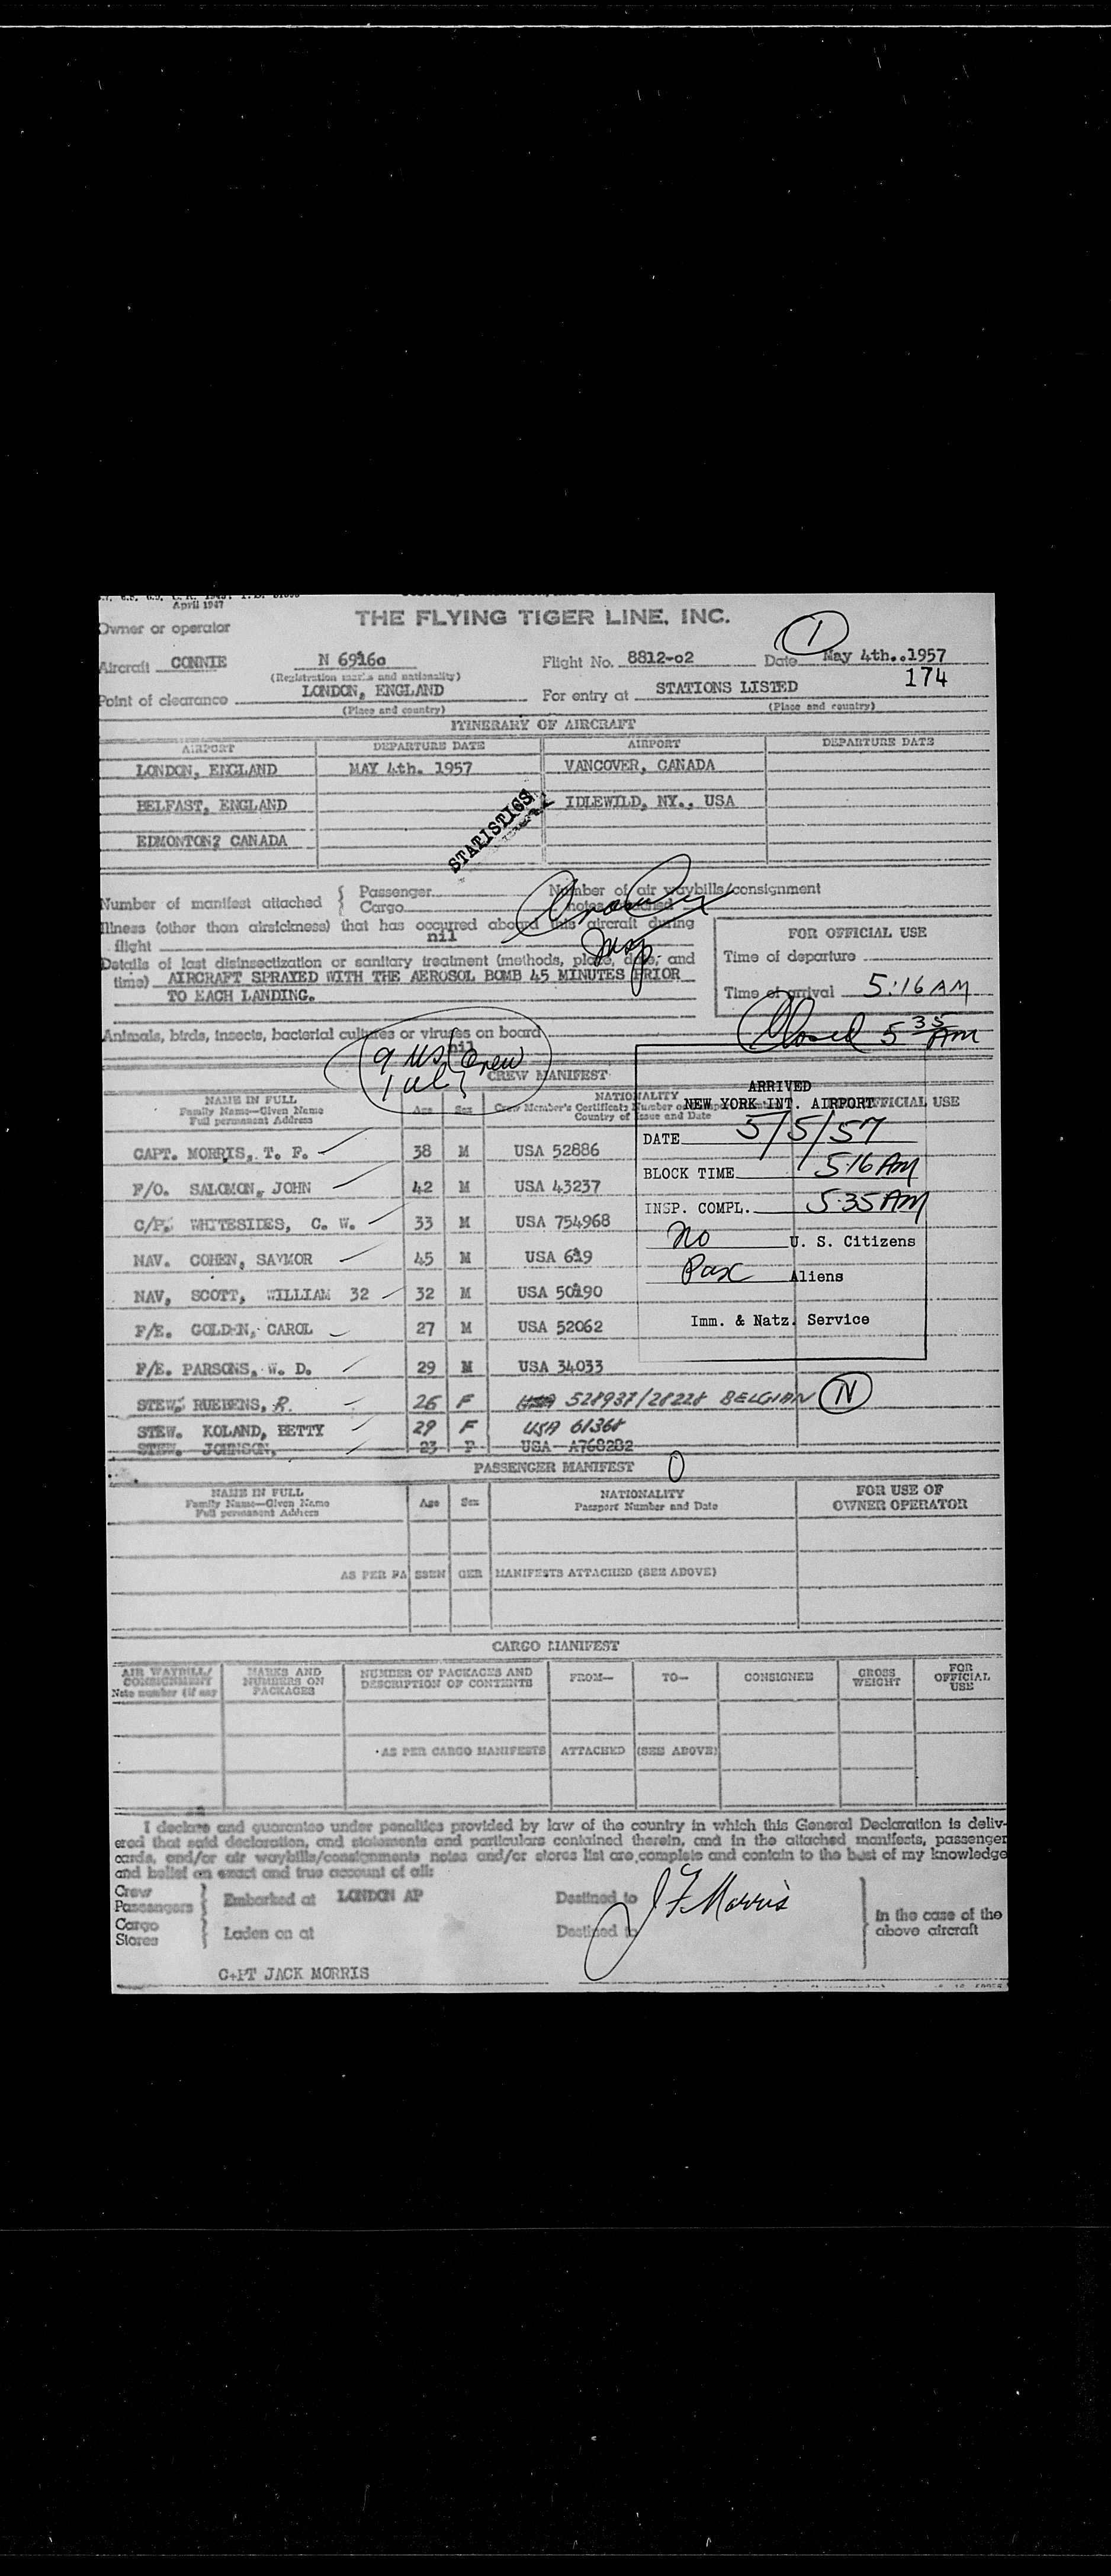 April 1947
THE FLYING TIGER LINE, INC.
Owner or operator
1
Aircraft CONNIE N 6916o Flight No. 8812-02 Date May 4th..1957
(Registration marks and nationality)
174
Point of clearance LONDON, ENGLAND For entry at STATIONS LISTED
(Place and country) (Place and country)
ITINERARY OF AIRCRAFT
AIRPORT DEPARTURE DATE AIRPORT DEPARTURE DATE
LONDON, ENGLAND MAY 4th. 1957 VANCOVER, CANADA
BELFAST, ENGLAND IDLEWILD, NY., USA
STATISTICS
EDMONTON? CANADA
Number of manifest attached { Passenger Number of air waybills/consignment
Cargo notes attached
Illness (other than airsickness) that has occured aboard this aircraft during
flight nil
Insp
FOR OFFICIAL USE
Details of last disinsectization or sanitary treatment (methods, place, date, and
time) AIRCRAFT SPRAYED WITH THE AEROSOL BOMB 45 MINUTES PRIOR
TO EACH LANDING.
Time of departure
Time of arrival 5:16 AM
Closed 5 35 AM
Animals, birds, insects, bacterial cultures or viruses on board
nil
9 US Crew
1
CREW MANIFEST
NAME IN FULL
Family Name—Given Name
Full permanent Address
Age Sex
NATIONALITY
Crew Member's Certificate Number or
Country of Issue and Date
OFFICIAL USE
ARRIVED
NEW YORK INT. AIRPORT
DATE 5/5/57
BLOCK TIME 5:16 AM
INSP. COMPL. 5:35 AM
No U. S. Citizens
Pax Aliens
Imm. & Natz. Service
CAPT. MORRIS, T. F. 38 M USA 52886
F/O. SALOMON, JOHN 42 M USA 43237
C/P. WHITESIDES, C. W. 33 M USA 754968
NAV. COHEN, SAYMOR 45 M USA 619
NAV, SCOTT, WILLIAM 32 32 M USA 50190
F/E. GOLD-N, CAROL 27 M USA 52062
F/E. PARSONS, W. D. 29 M USA 34033
STEW. RUEBENS, R. 26 F USA 528937/28228 BELGIAN N
STEW. KOLAND, BETTY 29 F USA 61368
STEW. JOHNSON, 23 F USA A768282
PASSENGER MANIFEST 0
NAME IN FULL
Family Name—Given Name
Full permanent Address
Age Sex
NATIONALITY
Passport Number and Date
FOR USE OF
OWNER OPERATOR
AS PER PASSENGER MANIFESTS ATTACHED (SEE ABOVE)
CARGO MANIFEST
AIR WAYBILL/
CONSIGNMENT
Note number (if any
MARKS AND
NUMBERS ON
PACKAGES
NUMBER OF PACKAGES AND
DESCRIPTION OF CONTENTS
FROM— TO— CONSIGNEE
GROSS
WEIGHT
FOR
OFFICIAL
USE
AS PER CARGO MANIFESTS ATTACHED (SEE ABOVE)
I declare and guarantee under penalties provided by law of the country in which this General Declaration is deliv-
ered that said declaration, and statements and particulars contained therein, and in the attached manifests, passenger
cards, and/or air waybills/consignments notes and/or stores list are, complete and contain to the best of my knowledge
and belief an exact and true account of all:
Crew
Passengers } Embarked at LONDON AP Destined to
J F Morris
Cargo
Stores } Laden on at Destined to
In the case of the
above aircraft
C+PT JACK MORRIS